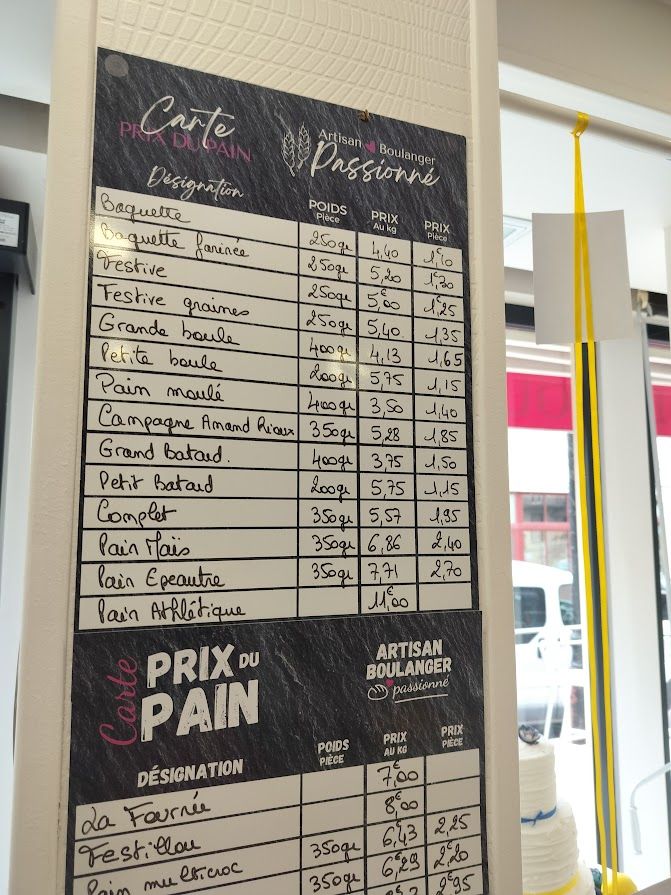 Carte
PRIX DU PAIN
Artisan Boulanger
Passionné
Désignation POIDS Pièce PRIX Au kg PRIX Pièce
Baguette 250gr 4,40 1€10
Baguette farinée 250gr 5,20 1€30
Festive 250gr 5€00 1€25
Festive graines 250gr 5,40 1,35
Grande boule 400gr 4,13 1,65
Petite boule 200gr 5,75 1,15
Pain moulé 400gr 3,50 1,40
Campagne Amand 350gr 5,28 1,85
Grand Batard. 400gr 3,75 1,50
Petit Batard 200gr 5,75 1,15
Complet 350gr 5,57 1,95
Pain Maïs 350gr 6,86 2,40
Pain Epeautre 350gr 7,71 2,70
Pain Athlétique 11€00
Carte PRIX DU PAIN
ARTISAN
BOULANGER
passionné
DÉSIGNATION POIDS PIÈCE PRIX AU KG PRIX PIÈCE
La Fournée 7€00
Festillou 8€00
Pain multicroc 350gr 6€43 2,25
350gr 6€29 2€20